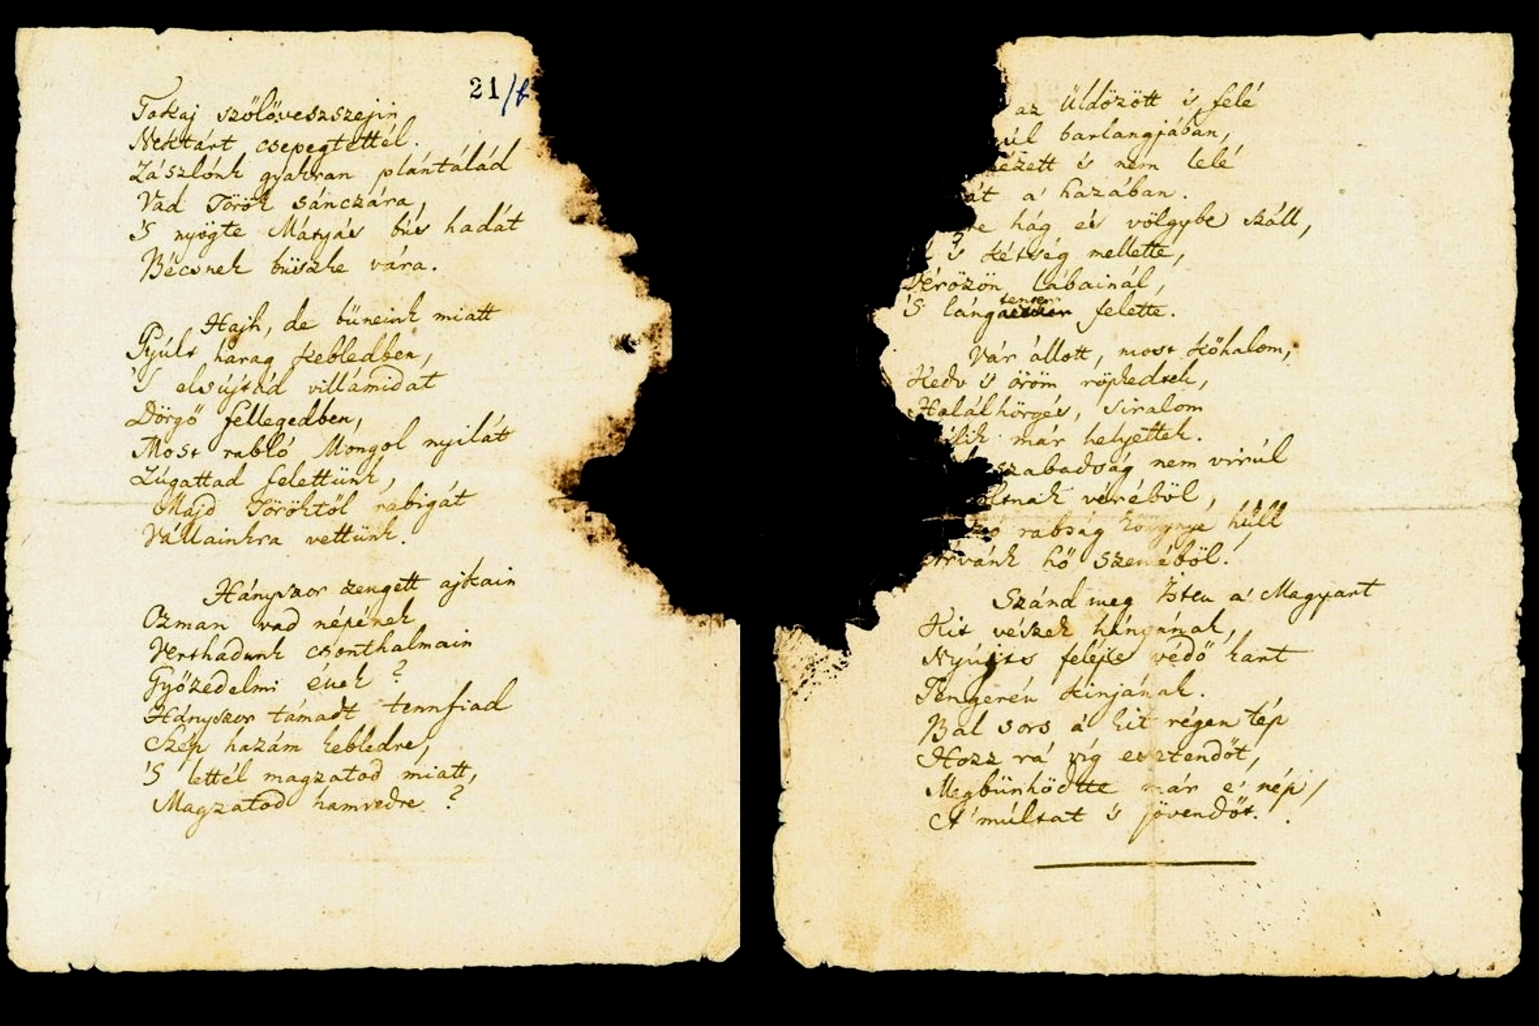 21/b
Tokaj szőlővesszejin
Nektárt csepegtettél.
Zászlónk gyakran plántálád
Vad Török sánczára,
'S nyögte Mátyás bús hadát
Bécsnek büszke vára.
Hajh, de bűneink miatt
Gyúlt harag kebledben,
'S elsújtád villámidat
Dörgő fellegedben,
Most rabló Mongol nyilát
Zúgattad felettünk,
Majd Töröktől rabigát
Vállainkra vettünk.
Hányszor zengett ajkain
Ozman vad népének
Verthadunk csonthalmain
Győzedelmi ének?
Hányszor támadt tennfiad
Szép hazám kebledre,
'S lettél magzatod miatt,
Magzatod hamvedre?
az üldözött is felé
barlangjában,
és nem lelé
a' hazában.
hág és völgybe száll,
's kétség mellette,
Vérözön lábainál,
'S lángtenger felette.
Vár állott, most kőhalom,
Kedv 's öröm röpkedtek,
Halálhörgés, siralom
már helyettek.
szabadság nem virúl
véréből,
rabság könnye hull
Árvánk hő szeméből!
Szánd meg Isten a' Magyart
Kit vészek hányának,
Nyújts feléje védő kart
Tengerén kínjának.
Bal sors a' kit régen tép
Hozz rá víg esztendőt,
Megbünhödtte már e' nép
A' múltat 's jövendőt.